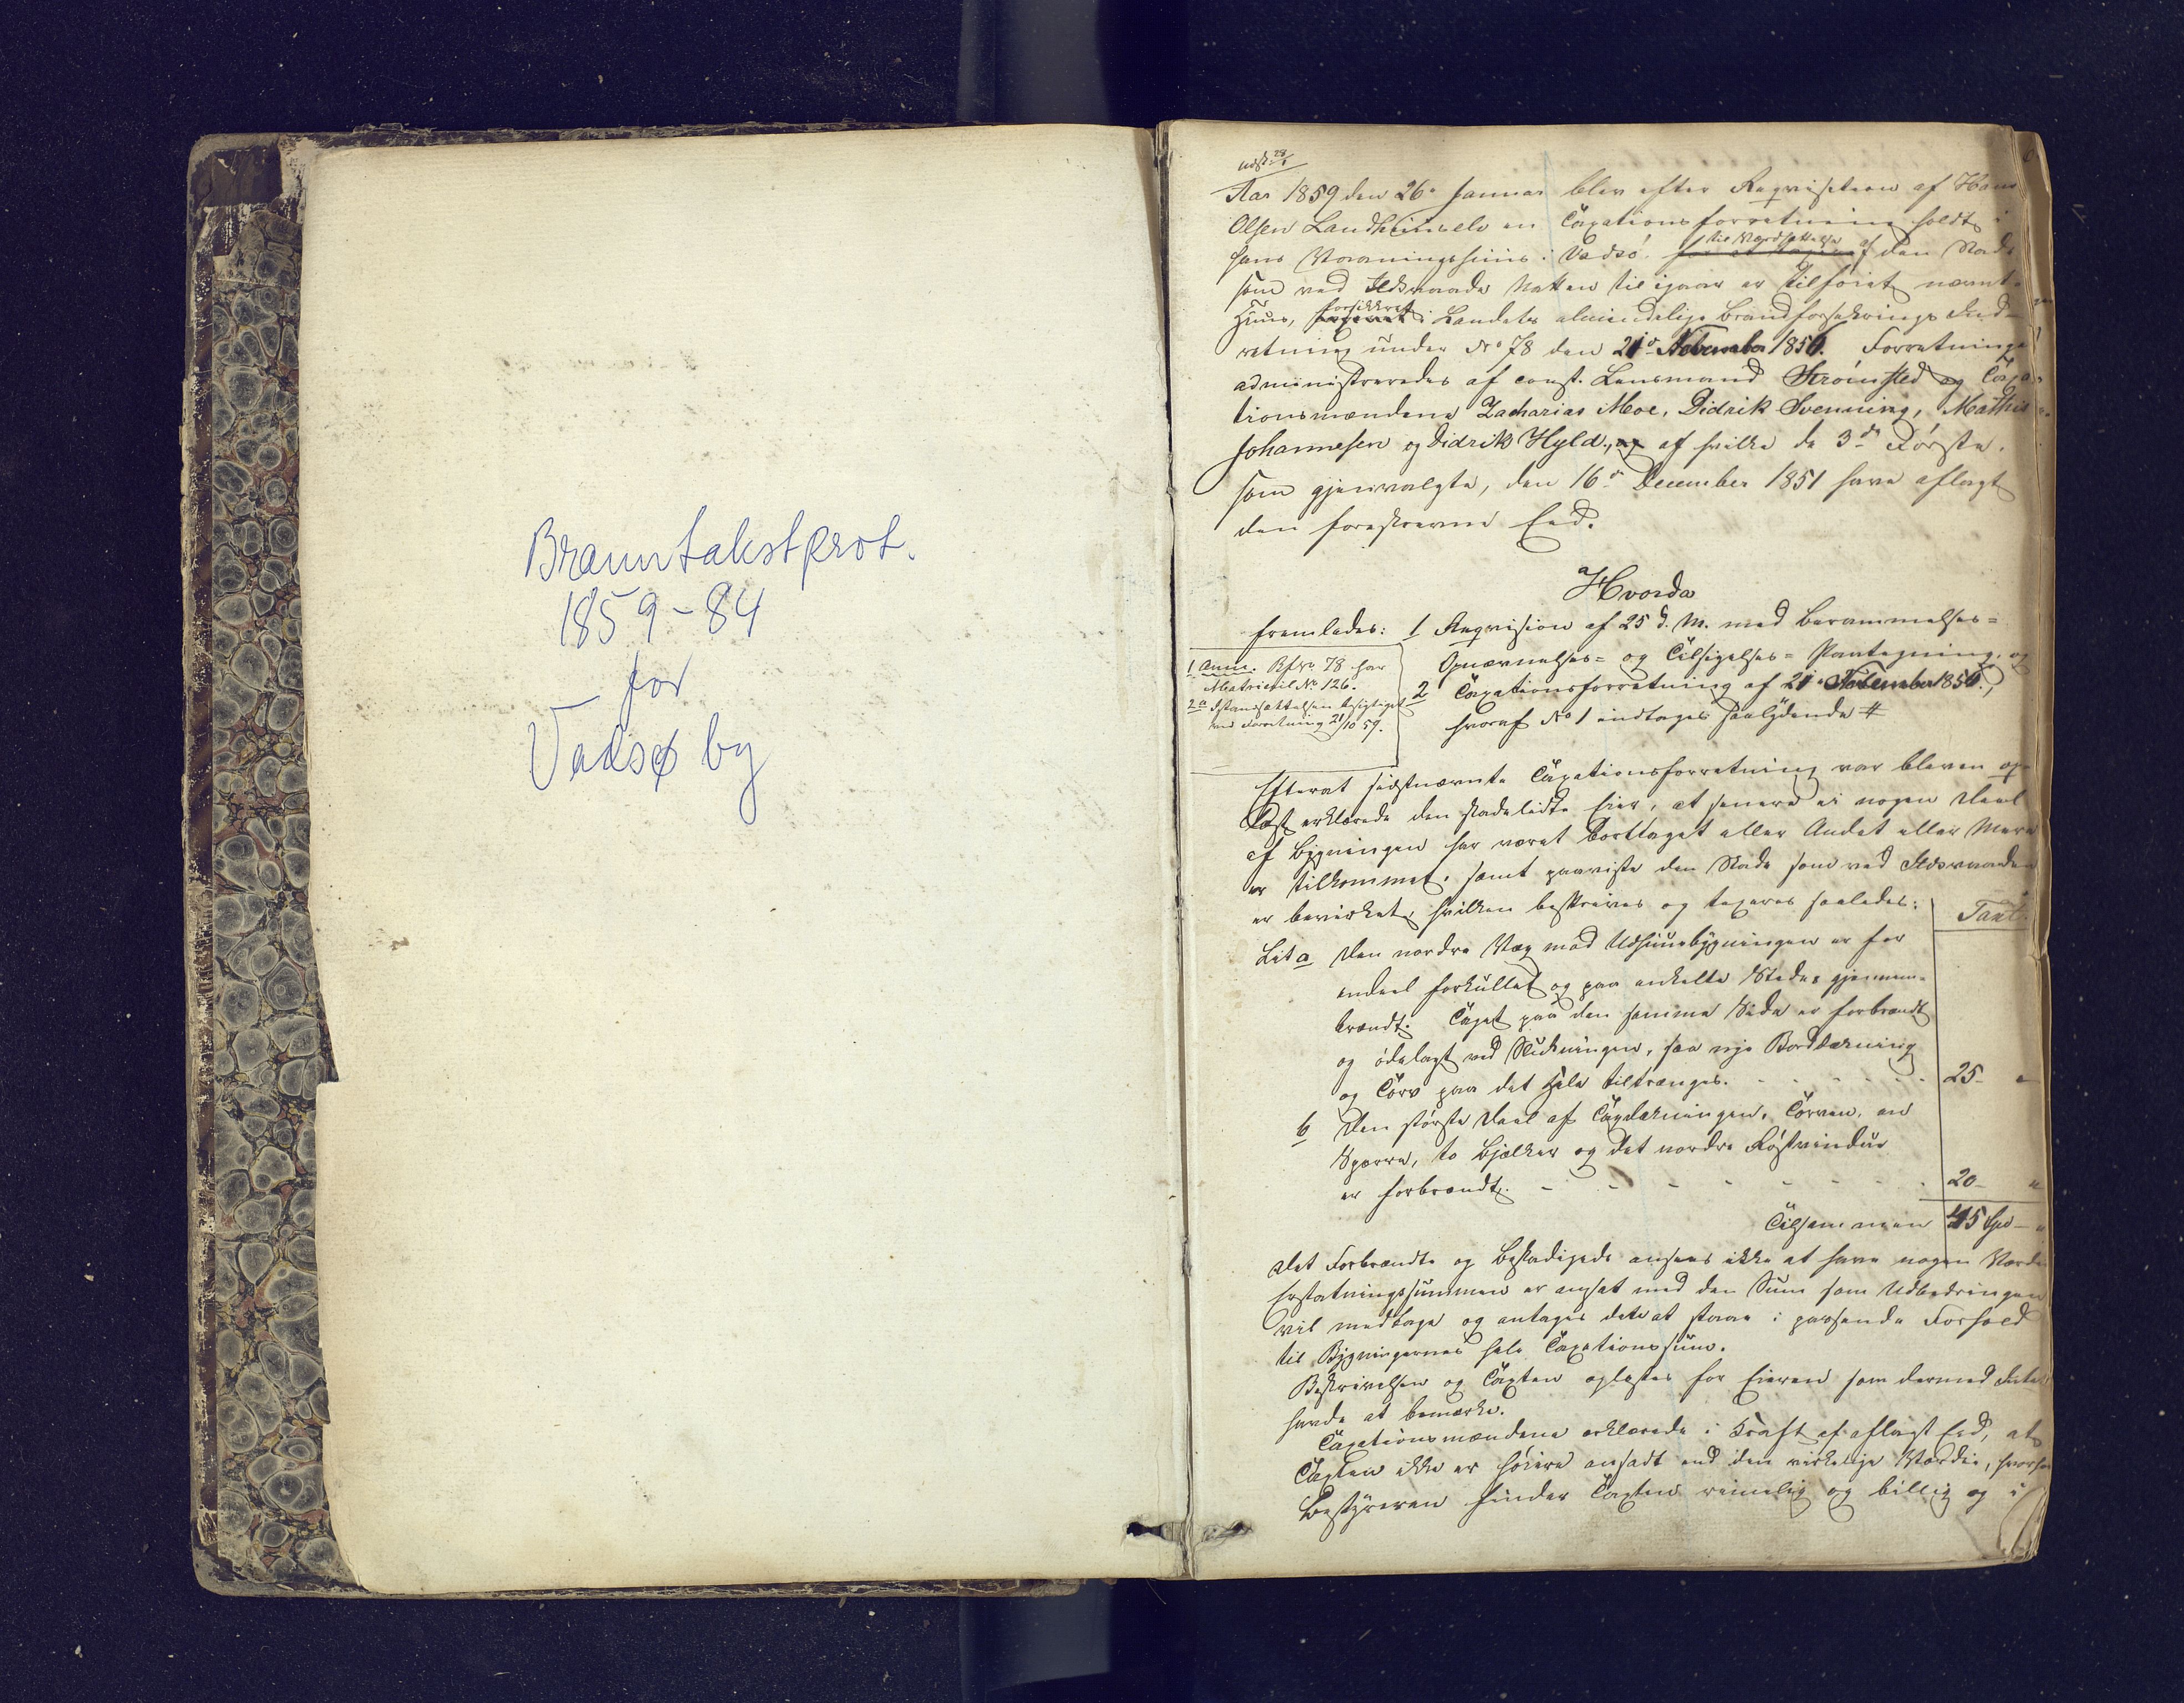 Branntakstprot.
1859-84
for
Vadsø by
udst. 28/1
Aar 1859 den 26de Januar blev efter Reqvisition af Hans
Olsen en Taxationsforretning holdt i
hans Vaaningshuus i Vadsø til Værdsættelse af den Skade
som ved Ildsvaade Natten til igaar er tilføiet nævnte
Huus, forsikkret i Landets almindelige Brandforsikrings Ind-
retning under No 78 den 21de November 1856. Forretningen
administreredes af const. Lensmand Strømsted og Taxa-
tionsmændene Zacharias Moe, Didrik Svenning, Mathis
Johannesen og Didrik Hyld, af hvilke de 3de Første,
som gjenvalgte, den 16de December 1851 have aflagt
den foreskrevne Eed.
Hvorda
fremlades: 1 Reqvision af 25 d. M. med Berammelses=
Opnævnelses= og Tilsigelses= Paategning, og
2 Taxationsforretning af 21de November 1856,
hvoraf No 1 indtages saalydende #
1 Anm. Bf No 78 har
Matricul No 126.
2 Istandsættelsen besigtiget
ved Forretning 21/10 59.
Efterat sidstnævnte Taxationsforretning var bleven op-
læst erklærede den skadelidte Eier, at senere ei nogen Deel
af Bygningen har været borttaget eller Andet eller Mere
er tilkommet, samt paaviste den Skade som ved Ildsvaaden
er bevirket, hvilken beskrives og taxeres saaledes:
Taxt.
Lit a Den nordre Væg mod Udhuusbygningen er for
endeel forkullet og paa enkelte Steder gjennem-
brændt. Taget paa den samme Side er forbrændt
og ødelagt ved Slukningen, saa nye Bordtækning
og Törv paa det Hele tiltrænges. 25 - "
b Den største Deel af Tagtækningen, Törven, en
Sparre, to Bjelker og det nordre Røstvindue
er forbrændt. 20 - "
Tilsammen 45 Spd - "
Det Forbrændte og Beskadigede ansees ikke at have nogen Værdi
Erstatningssummen er ansat med den Sum som Udbedringen
vil medtage og antages dette at staae i passende Forhold
til Bygningernes hele Taxationssum.
Beskrivelsen og Taxten oplæstes for Eieren som dermed Intet
havde at bemærke.
Taxationsmændene erklærede i Kraft af aflagt Eed, at
Taxten ikke er høiere ansadt end den virkelige Værdie,
Bestyreren finder Taxten rimelig og billig og i